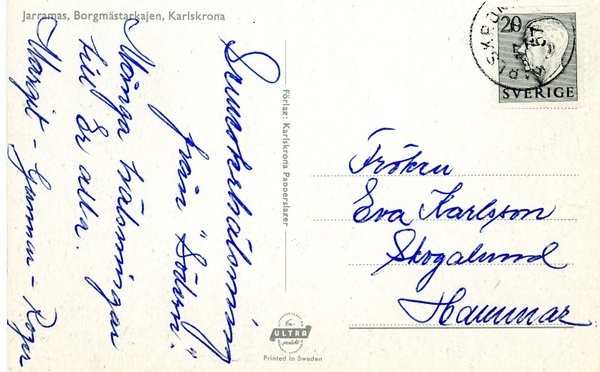 Jarramas, Borgmästarkajen, Karlskrona
Semesterhälsning
från "Södern".
Många hälsningar
till Er alla.
Margit - Gunnar - Roger
Förlag: Karlskrona Papperslager
20
SVERIGE
Fröken
Eva Karlsson
Skogalund
Hammar
En
ULTRA
produkt
Printed in Sweden